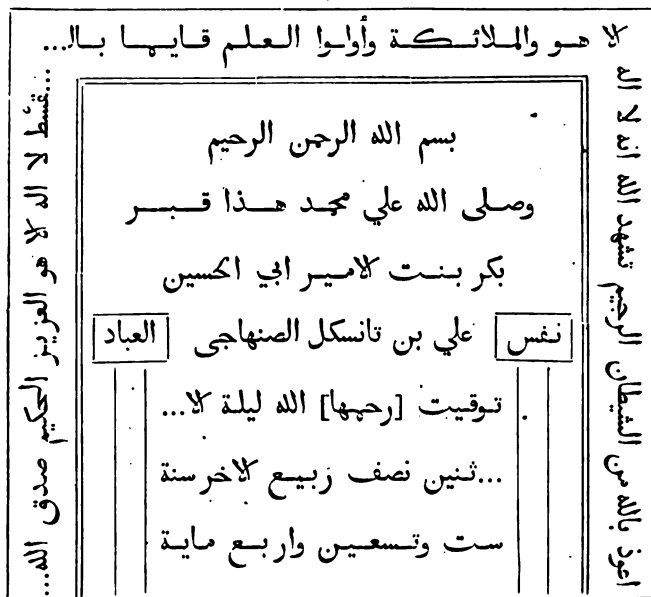 اعوذ بالله من الشيطان الرجيم تشهد الله انه لا اله
الا هو والملائكة وأولوا العلم قايما بالـ...
...قسّط لا اله الا هو العزيز الحكيم صدق الله...
بسم الله الرحمن الرحيم
وصلى الله علي محمد هذا قبر
بكر بنت الامير ابي الحسين
نفس علي بن تانسكل الصنهاجى العباد
توقيت [رحمها] الله ليلة الا...
...ثنين نصف ربيع الاخر سنة
ست وتسعين واربع ماية